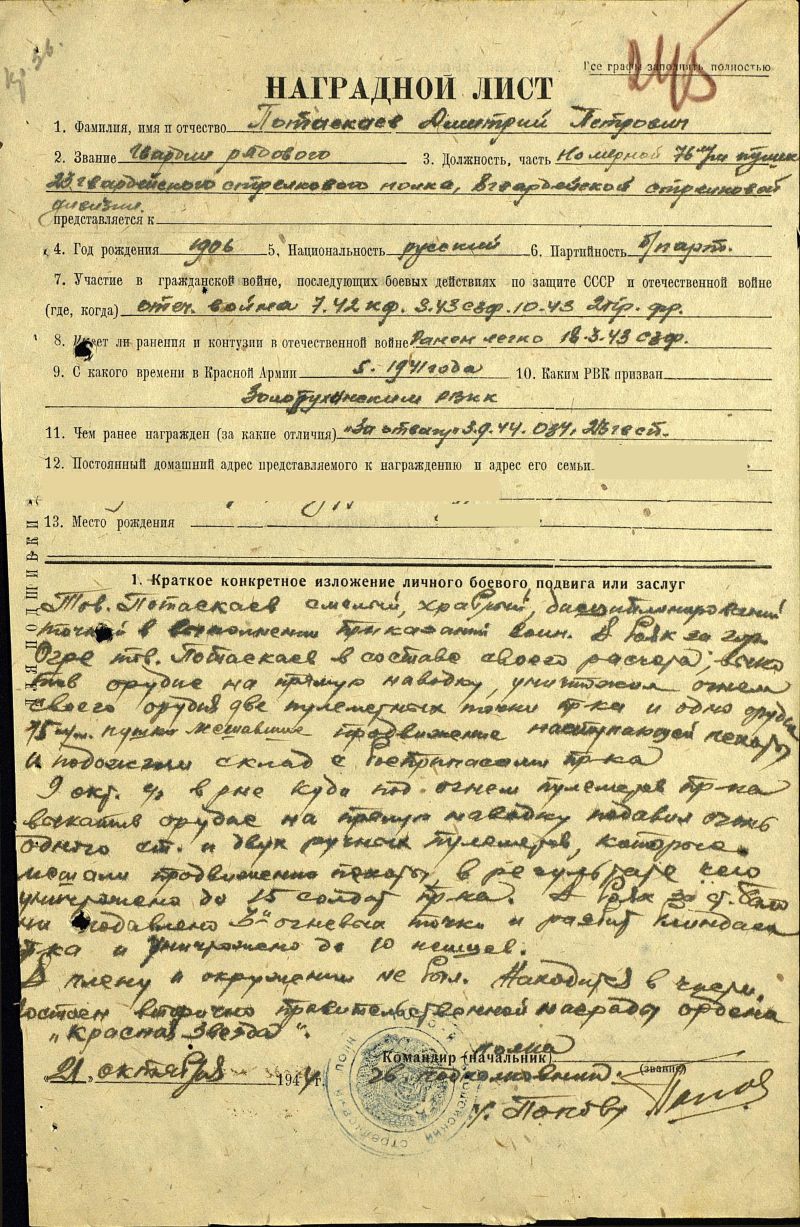 Кр. Зв.
245
Все графы заполнять полностью
НАГРАДНОЙ ЛИСТ
1. Фамилия, имя и отчество Потаскаев Дмитрий Петрович
2. Звание Гвардии рядового 3. Должность, часть Номерной 76 м/м пушек
23 гвардейского стрелкового полка, 8 гвардейской стрелковой
дивизии
представляется к
4. Год рождения 1906 5. Национальность русский 6. Партийность б/парт.
7. Участие в гражданской войне, последующих боевых действиях по защите СССР и отечественной войне
(где, когда) отеч. война 7.42 кф. 3.43 сзф. 10.43 2 пр. фр.
8. Имеет ли ранения и контузии в отечественной войне Ранен легко 18.3.43 сзф.
9. С какого времени в Красной Армии 5. 1941 года 10. Каким РВК призван
Золотухинским РВКК
11. Чем ранее награжден (за какие отличия) "За отвагу" 3.9.44. 034, 23 гвсп.
12. Постоянный домашний адрес представляемого к награждению и адрес его семьи
13. Место рождения
ДЛЯ ПОДШИВКИ
1. Краткое конкретное изложение личного боевого подвига или заслуг
Тов. Потаскаев смелый, храбрый, дисциплинированый
точный в выполнении приказаний воин. В боях за гор.
Огре тов. Потаскаев в составе своего расчета, выка
тив орудие на прямую наводку, уничтожил огнем
своего орудия две пулеметных точки пр-ка и одно орудие
75 м/м. пушки мешавшие продвижение наступающей пехоты
и подожгли склад с боеприпасами пр-ка
9 окт. в р-не под огнем пулеметов пр-ка
выкатив орудие на прямую наводку подавил огонь
одного ст. и двух ручных пулеметов, которые
мешали продвижению пехоты, в результате чего
уничтожено до 15 солдат пр-ка. В боях за ст.
подавлено 3 огневых точки и разбит блиндаж
пр-ка и уничтожено до 10 немцев.
В плену и окружении не был. Находится в части.
Достоен вторично правительственной награды ордена
"Красная Звезда".
Командир (начальник) полка
(звание)
"21" октября 1944 г. гв. подполковник
Попов